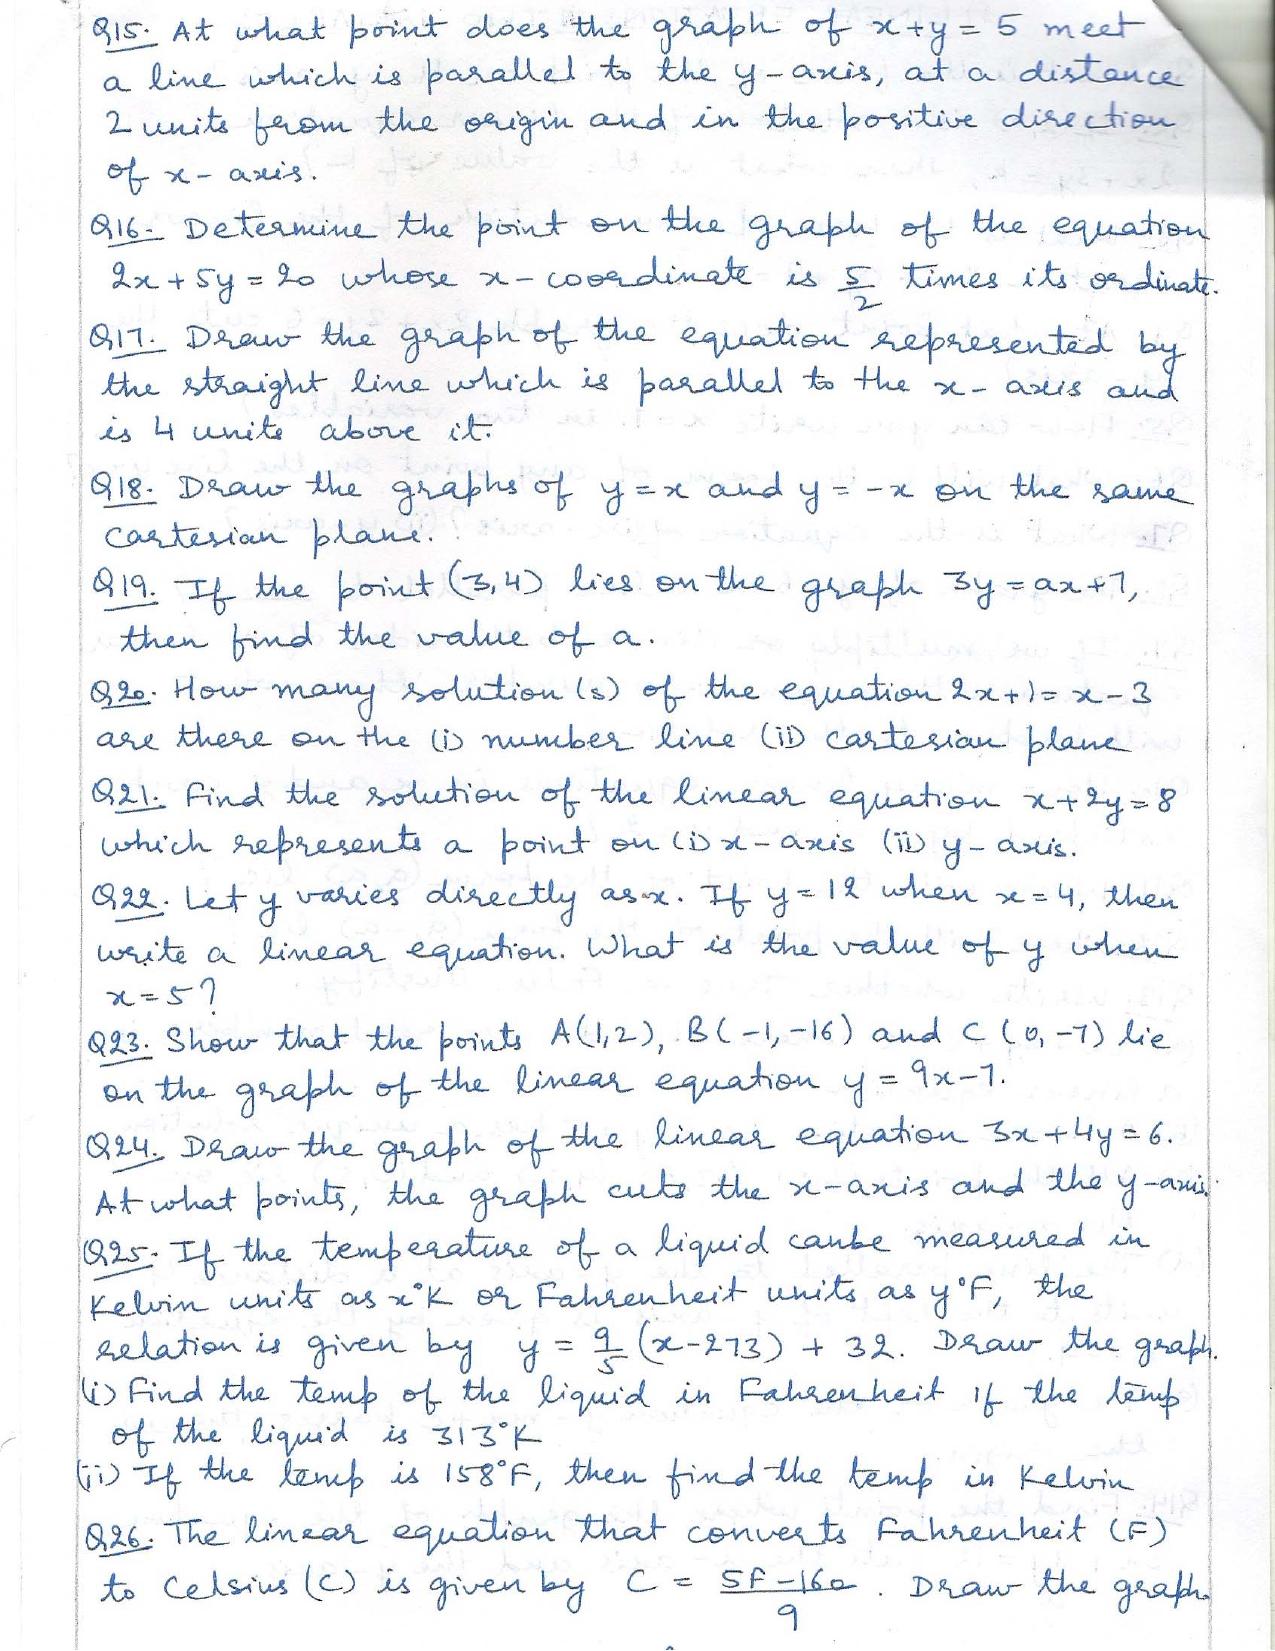 Q15. At what point does the graph of x+y = 5 meet
a line which is parallel to the y-axis, at a distance
2 units from the origin and in the positive direction
of x-axis.
Q16. Determine the point on the graph of the equation
2x + 5y = 20 whose x-coordinate is 5/2 times its ordinate.
Q17. Draw the graph of the equation represented by
the straight line which is parallel to the x-axis and
is 4 units above it.
Q18. Draw the graphs of y = x and y = -x on the same
cartesian plane.
Q19. If the point (3,4) lies on the graph 3y = ax+7,
then find the value of a.
Q20. How many solution (s) of the equation 2x+1 = x-3
are there on the (i) number line (ii) cartesian plane
Q21. Find the solution of the linear equation x+2y=8
which represents a point on (i) x-axis (ii) y-axis.
Q22. Let y varies directly as x. If y = 12 when x = 4, then
write a linear equation. What is the value of y when
x = 5?
Q23. Show that the points A(1,2), B(-1,-16) and C(0,-7) lie
on the graph of the linear equation y = 9x-7.
Q24. Draw the graph of the linear equation 3x+4y = 6.
At what points, the graph cuts the x-axis and the y-axis.
Q25. If the temperature of a liquid canbe measured in
Kelvin units as x°K or Fahrenheit units as y°F, the
relation is given by y = 9/5 (x-273) + 32. Draw the graph.
(i) Find the temp of the liquid in Fahrenheit if the temp
of the liquid is 313°K
(ii) If the temp is 158°F, then find the temp in Kelvin
Q26. The linear equation that converts Fahrenheit (F)
to Celsius (C) is given by C = 5F-160/9. Draw the graph.